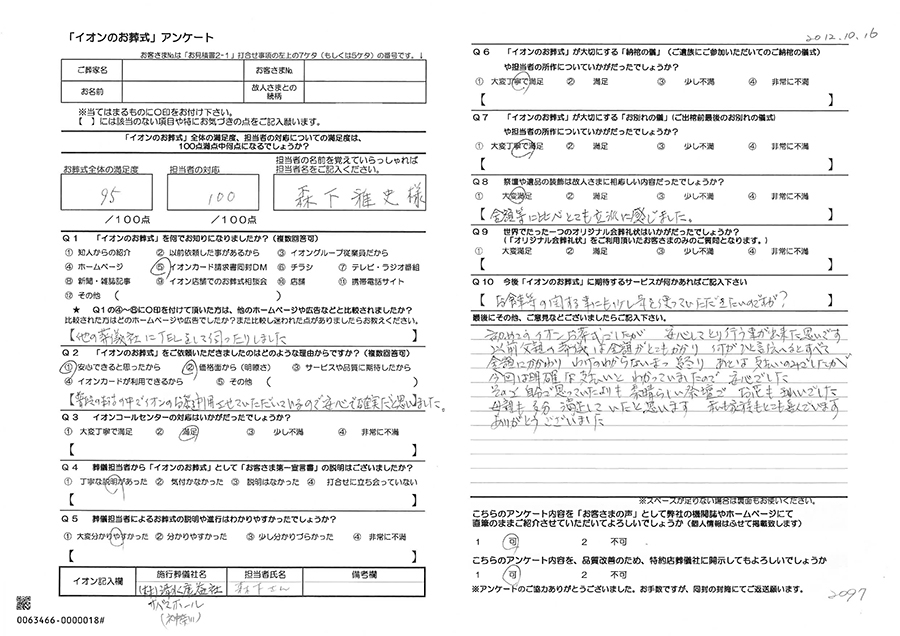 「イオンのお葬式」アンケート
お客さま№は「お見積書2-1」打合せ事項の左上の7ケタ(もしくは5ケタ)の番号です。↓
ご葬家名
お客さま№
お名前
故人さまとの続柄
※当てはまるものに〇印をお付け下さい。
【 】には該当のない項目や特にお気づきの点をご記入願います。
「イオンのお葬式」全体の満足度、担当者の対応についての満足度は、
100点満点中何点になるでしょうか?
お葬式全体の満足度
担当者の対応
担当者の名前を覚えていらっしゃれば
担当者名をご記入ください。
95
100
森下雅史様
/100点
/100点
Q1 「イオンのお葬式」を何でお知りになりましたか?(複数回答可)
① 知人からの紹介 ② 以前利用した事があるから ③ イオングループ従業員だから
④ ホームページ ⑤ イオンカード請求書同封DM ⑥ チラシ ⑦ テレビ・ラジオ番組
⑧ 新聞・雑誌記事 ⑨ イオン店舗でのお葬式相談会 ⑩ 店舗 ⑪ 携帯電話サイト
⑫ その他 ( )
★ Q1の④~⑧に〇印を付けて頂いた方は、他のホームページや広告などと比較されましたか?
比較された方はどのホームページや広告でしたか?また比較し迷われた点がありましたらお教えください。
【他の葬儀社にTELをして伺ったりしました】
Q2 「イオンのお葬式」をご依頼いただきましたのはどのような理由からですか?(複数回答可)
① 安心できると思ったから ② 価格面から(明瞭さ) ③ サービスや品質に期待したから
④ イオンカードが利用できるから ⑤ その他 ( )
Q3 イオンコールセンターの対応はいかがだったでしょうか?
① 大変丁寧で満足 ② 満足 ③ 少し不満 ④ 非常に不満
【 】
Q4 葬儀担当者から「イオンのお葬式」として「お客さま第一宣言書」の説明はございましたか?
① 丁寧な説明があった ② 気付かなかった ③ 説明はなかった ④ 打合せに立ち会っていない
【 】
Q5 葬儀担当者によるお葬式の説明や進行はわかりやすかったでしょうか?
① 大変分かりやすかった ② 分かりやすかった ③ 少し分かりづらかった ④ 非常に不満
【 】
イオン記入欄
施行葬儀社名
担当者氏名
備考欄
森下さん
(神奈川)
0063466-0000018#
2012.10.16
Q6 「イオンのお葬式」が大切にする「納棺の儀」(ご遺族にご参加いただいてのご納棺の儀式)
や担当者の所作についていかがだったでしょうか?
① 大変丁寧で満足 ② 満足 ③ 少し不満 ④ 非常に不満
【 】
Q7 「イオンのお葬式」が大切にする「お別れの儀」(ご出棺前最後のお別れの儀式)
や担当者の所作についていかがだったでしょうか?
① 大変丁寧で満足 ② 満足 ③ 少し不満 ④ 非常に不満
【 】
Q8 祭壇や遺品の装飾は故人さまに相応しい内容だったでしょうか?
① 大変満足 ② 満足 ③ 少し不満 ④ 非常に不満
【金額等に比べとても立派に感じました。】
Q9 世界でたった一つのオリジナル会葬礼状はいかがだったでしょうか?
(「オリジナル会葬礼状」をご利用頂いたお客さまのみのご質問となります。)
① 大変満足 ② 満足 ③ 少し不満 ④ 非常に不満
【 】
Q10 今後「イオンのお葬式」に期待するサービスが何かあればご記入下さい
最後にその他、ご意見などございましたらご記入下さい。
ありがとうございました
※スペースが足りない場合は裏面もお使いください。
こちらのアンケート内容を「お客さまの声」として弊社の機関誌やホームページにて
直筆のままご紹介させていただいてよろしいでしょうか(個人情報はふせて掲載致します)
1 可 2 不可
こちらのアンケート内容を、品質改善のため、特約店葬儀社に開示してもよろしいでしょうか
1 可 2 不可
※アンケートのご協力ありがとうございました。お手数ですが、同封の封筒にてご返送願います。
2097